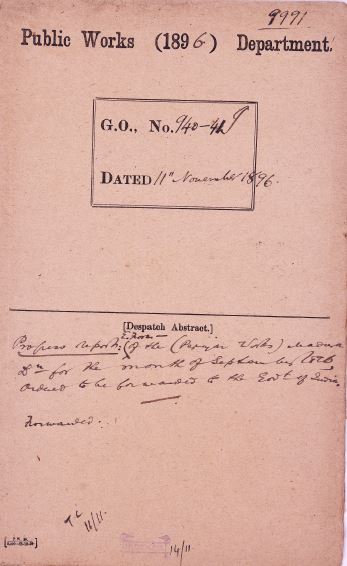 9991.
Public Works (1896) Department.
G.O., No. 940-41 I
DATED 11th November 1896.
[Despatch Abstract.]
Progress reports of the (Periyar Works) Madura
Dn for the month of September 1896
Ordered to be forwarded to the Govt of India.
Forwarded.
11/11.
14/11